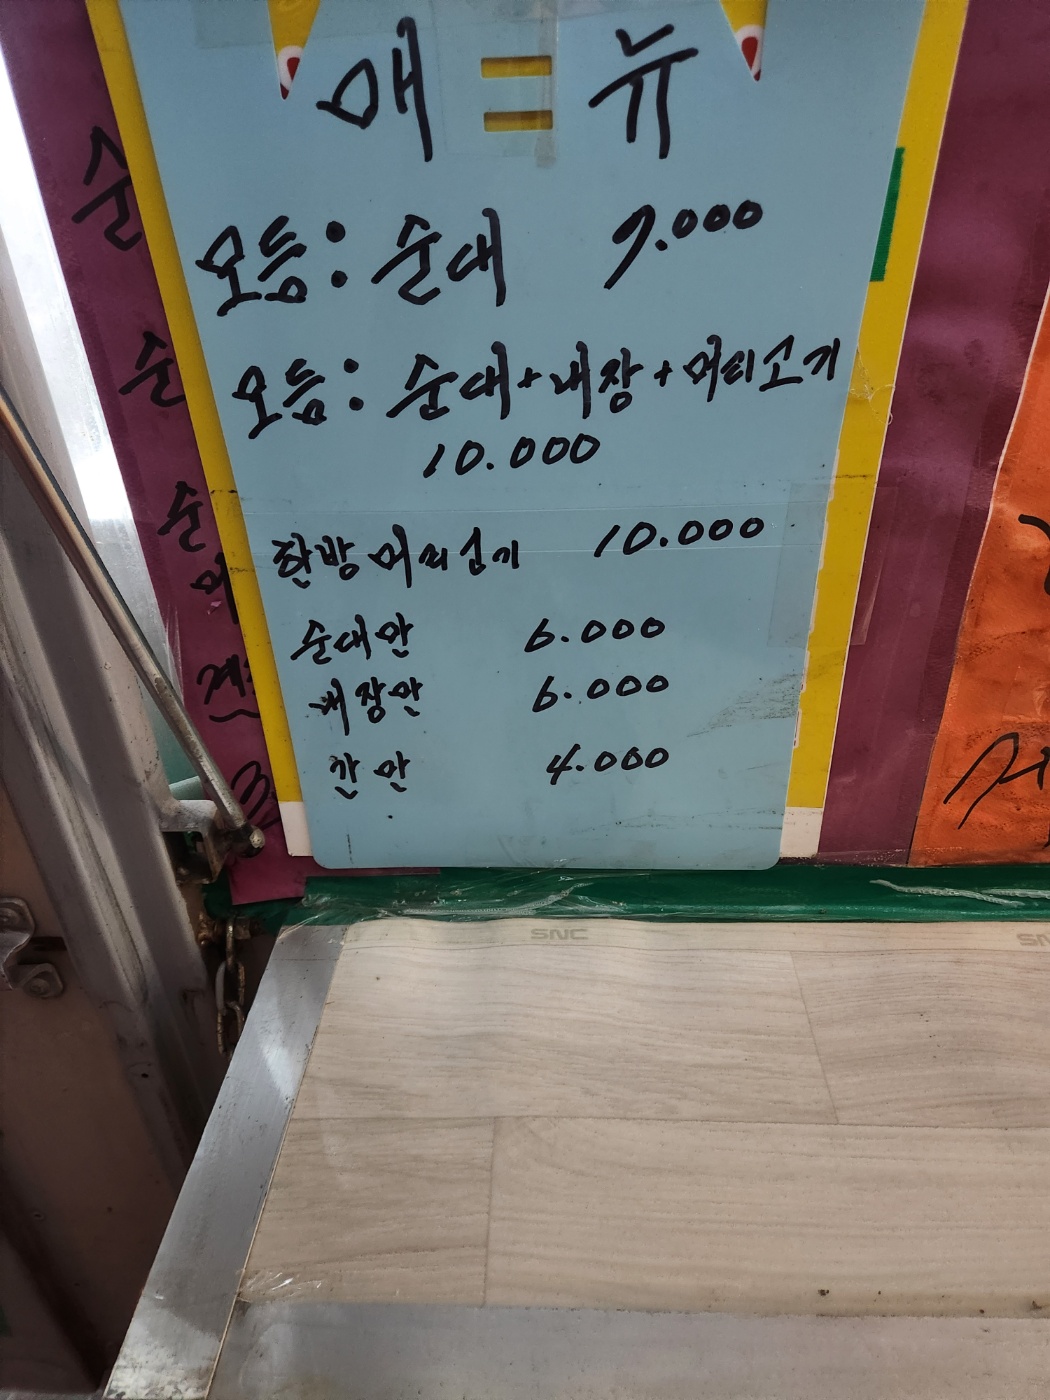 매 = 뉴
모듬: 순대 7.000
모듬: 순대+내장+머리고기
10.000
한방 머리고기 10.000
순대만 6.000
내장만 6.000
간만 4.000
순
순
순
머
SNC